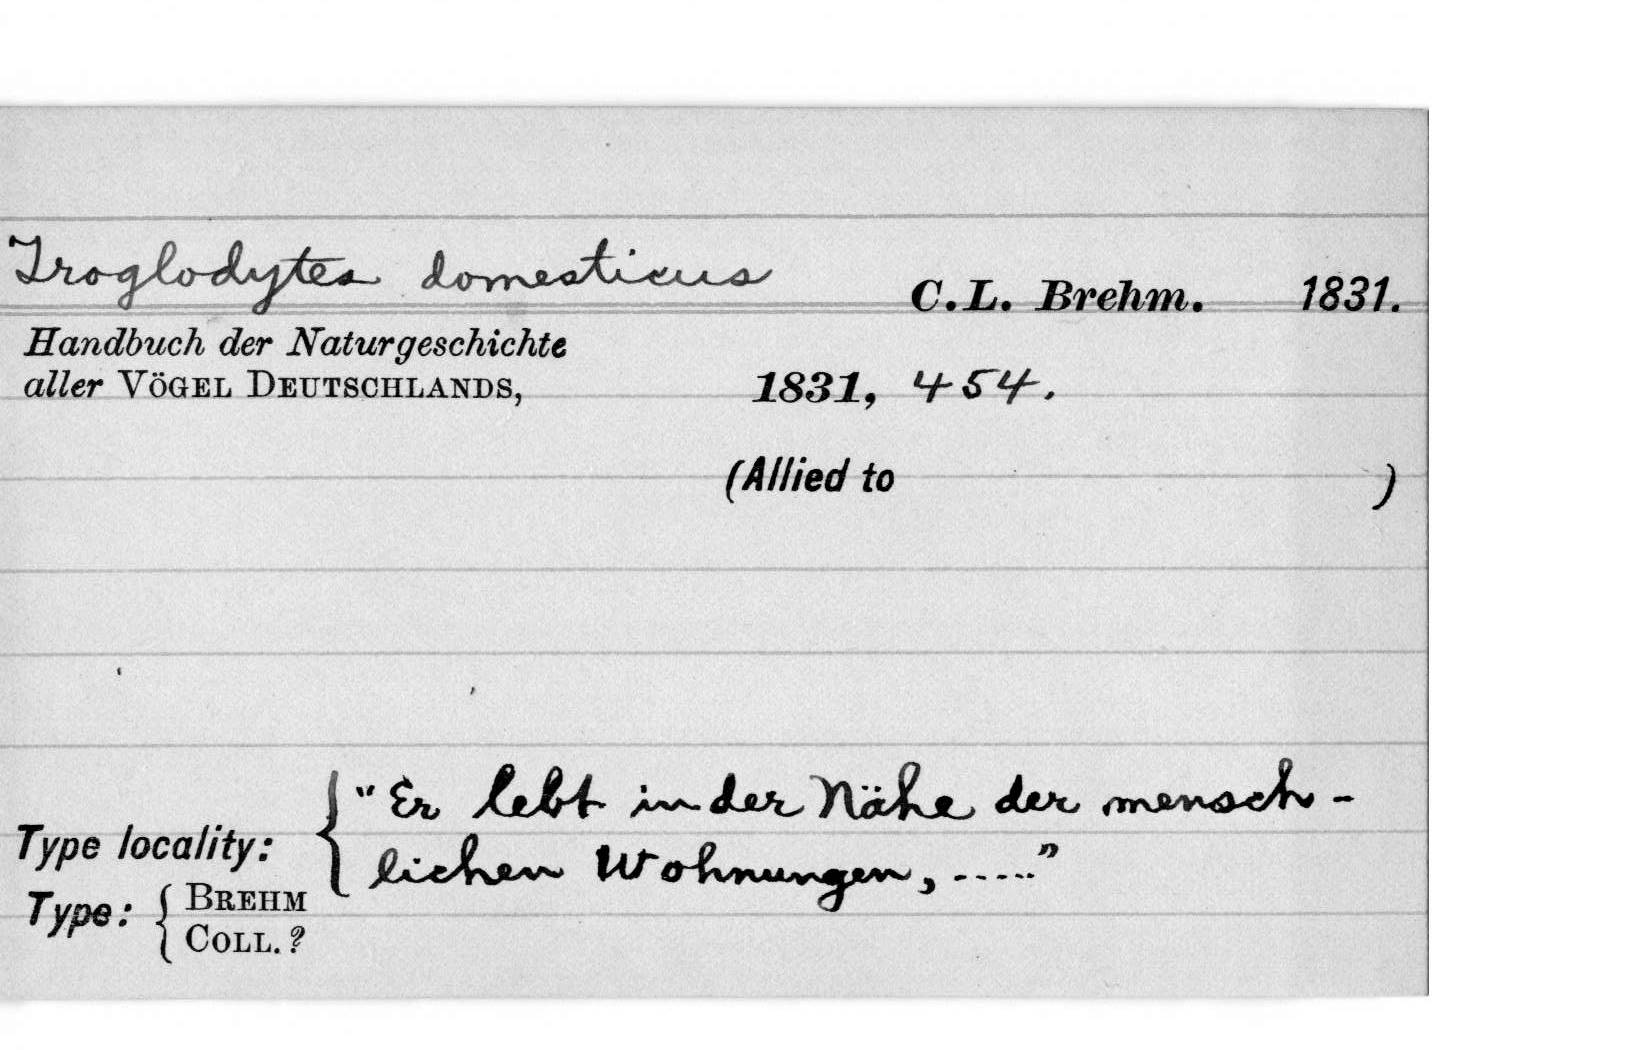 Troglodytes domesticus C.L. Brehm. 1831.
Handbuch der Naturgeschichte
aller VÖGEL DEUTSCHLANDS, 1831, 454.
(Allied to )
"Er lebt in der Nähe der mensch-
Type locality: lichen Wohnungen, ....."
Type: { BREHM
COLL. ?